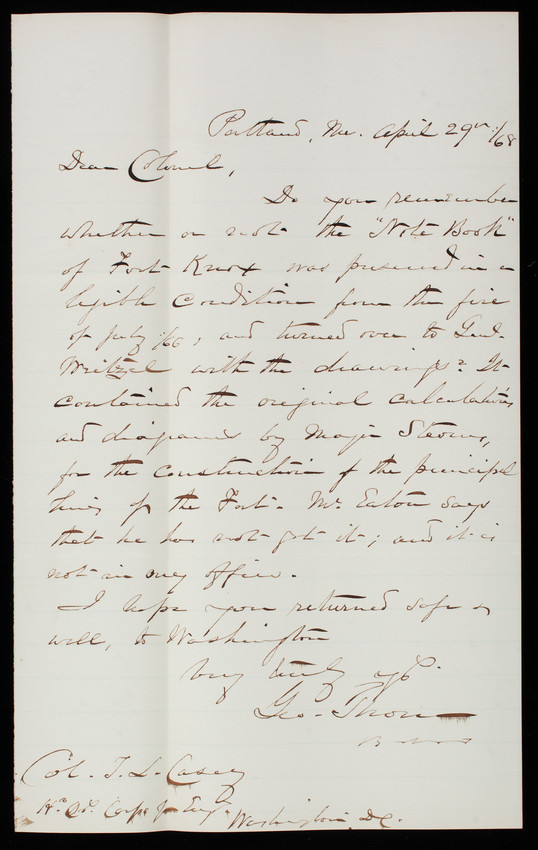 Portland, Me. April 29th /68
Dear Colonel,
Do you remember
whether or not the "Note Book"
of Fort Knox was preserved in a
legible condition from the fire
of July /66, and turned over to Genl.
Weitzel with the drawings? It
contained the original calculations
and diagrams by Major Stevens,
for the construction of the principal
lines of the Fort. Mr. Eaton says
that he has not got it; and it is
not in my office.
I hope you returned safe &
well, to Washington
Very truly yrs.
Geo. Thom
Col. T. L. Casey
Hd. Qrs. Corps of Engrs
Washington D.C.